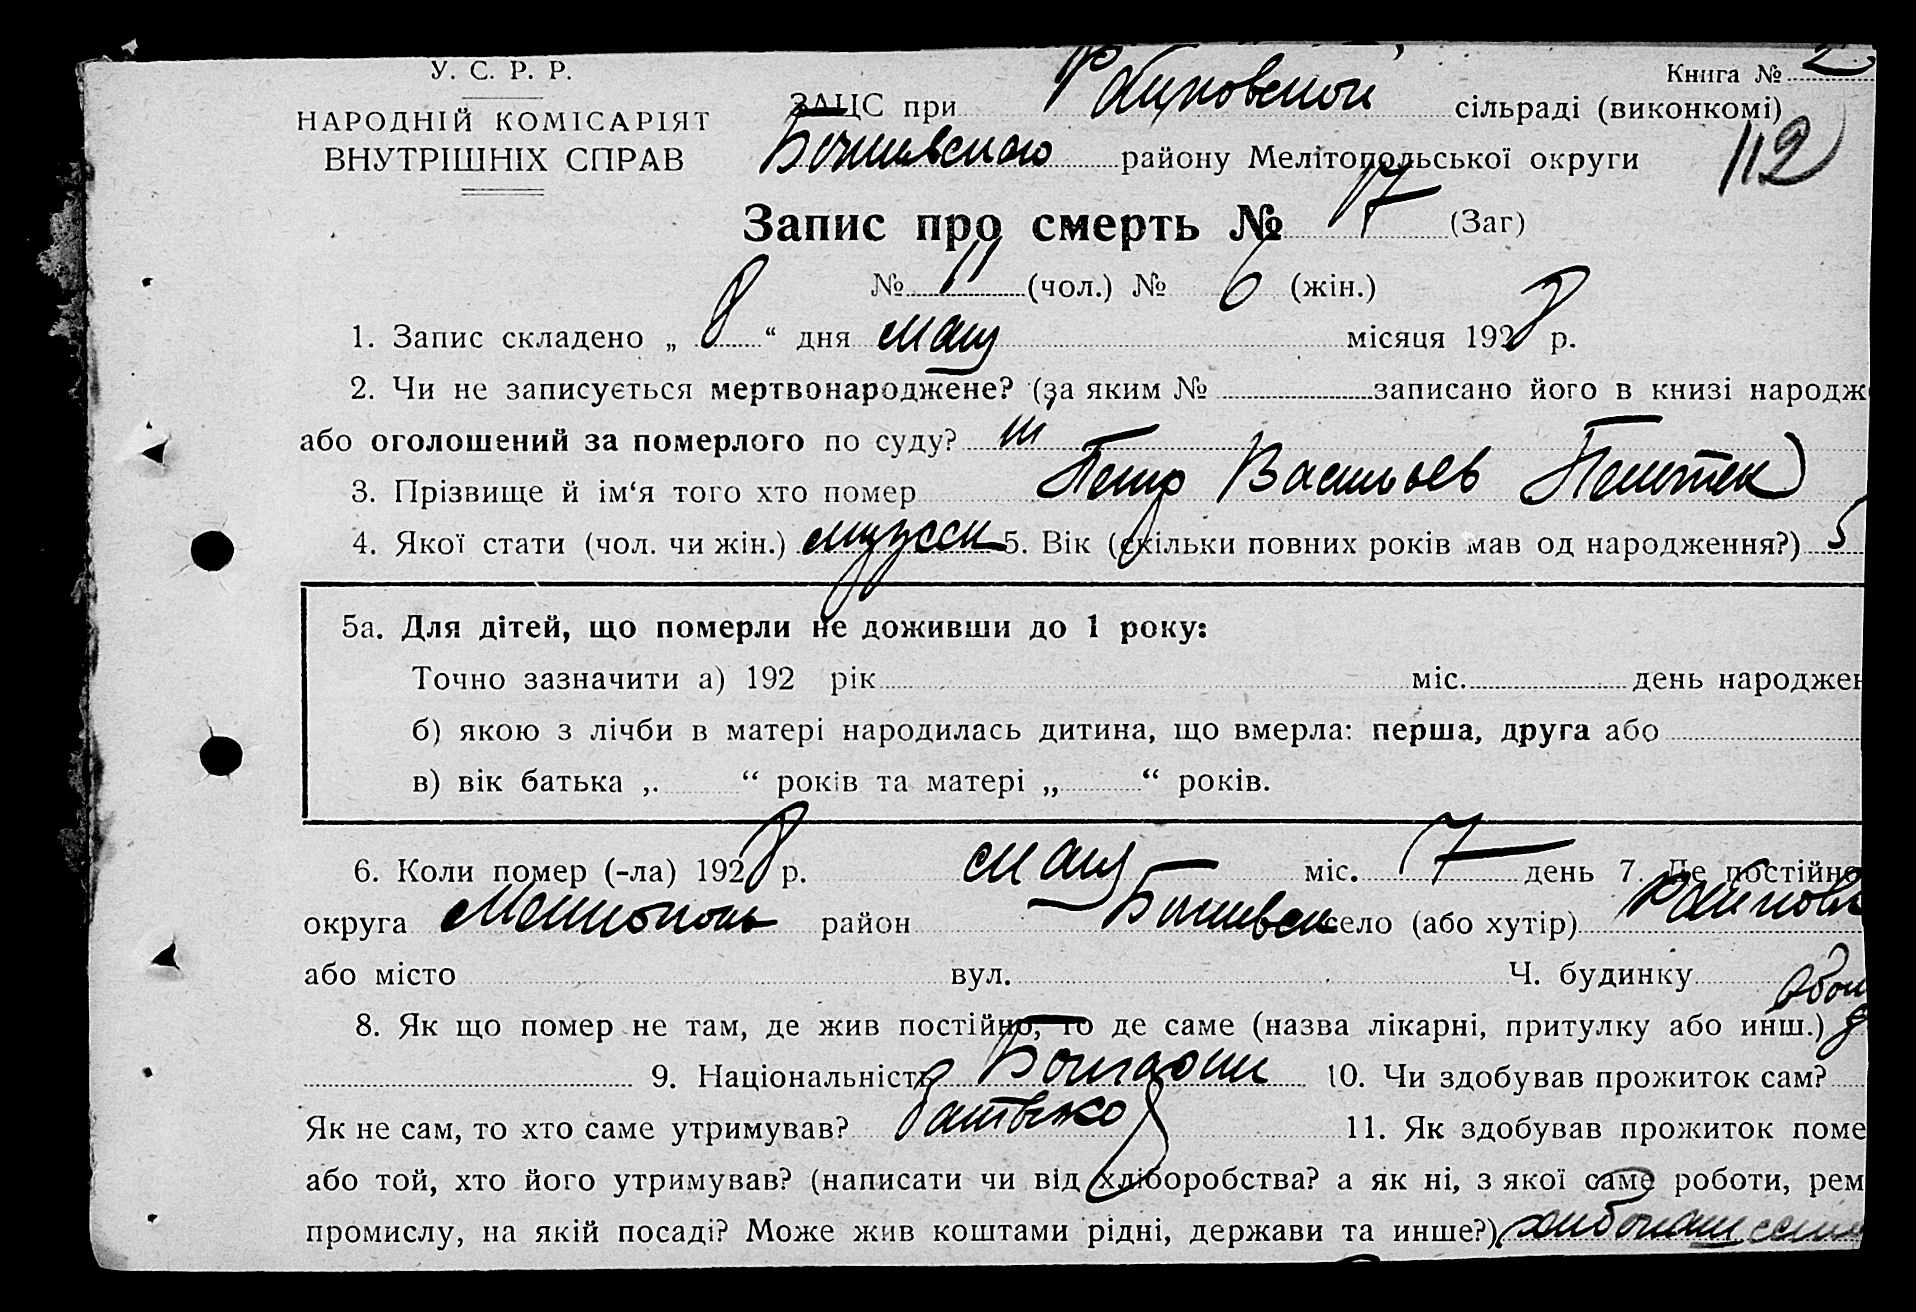 У. С. Р. Р.
Книга № 2
НАРОДНІЙ КОМІСАРІЯТ
ВНУТРІШНІХ СПРАВ
ЗАЦС при Райновской сільраді (виконкомі)
району Мелітопольської округи
112
Запис про смерть № 17 (Заг)
№ 11 (чол.) № 6 (жін.)
1. Запис складено „ 8 “ дня мая місяця 1928 р.
2. Чи не записується мертвонароджене? (за яким № записано його в книзі народж
або оголошений за померлого по суду? ні
3. Прізвище й ім‘я того хто помер Петр Васильев
4. Якої стати (чол. чи жін.) мужск 5. Вік (скільки повних років мав од народження?) 5
5а. Для дітей, що померли не доживши до 1 року:
Точно зазначити а) 192 рік міс. день народжен
б) якою з лічби в матері народилась дитина, що вмерла: перша, друга або
в) вік батька „ “ років та матері „ “ років.
6. Коли помер (-ла) 1928 р. мая міс. 17 день 7. Де постійно
округа Мелитополь район село (або хутір) Райновк
або місто вул. Ч. будинку
8. Як що помер не там, де жив постійно, то де саме (назва лікарні, притулку або инш.)
9. Національність Болгарин 10. Чи здобував прожиток сам?
Як не сам, то хто саме утримував? батько 11. Як здобував прожиток поме
або той, хто його утримував? (написати чи від хліборобства? а як ні, з якої саме роботи, рем
промислу, на якій посаді? Може жив коштами рідні, держави та инше?)